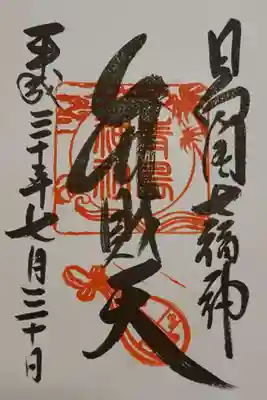 日向国七福神
弁財天
平成三十年七月三十日